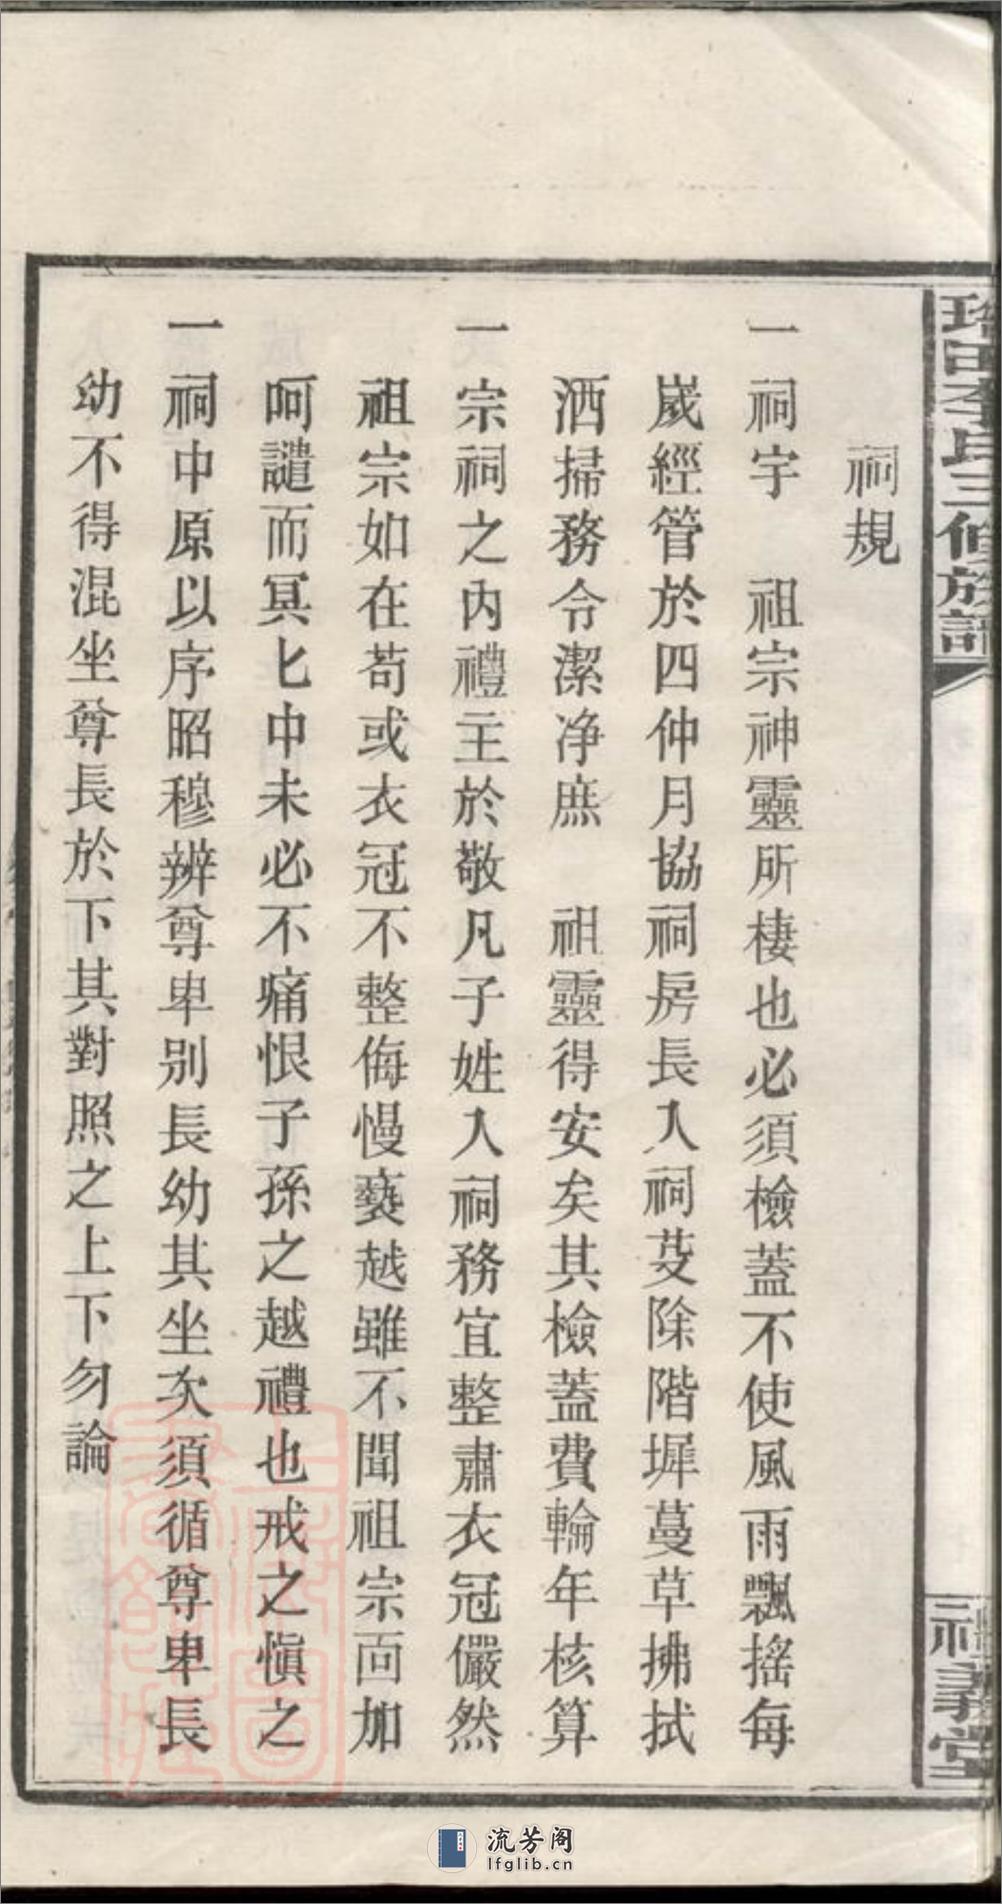 田李氏三修族譜
祠規
一祠宇　祖宗神靈所棲也必須檢蓋不使風雨飄搖每
歲經管於四仲月協祠房長入祠芟除階墀蔓草拂拭
洒掃務令潔净庶　祖靈得安矣其檢蓋費輪年核算
一宗祠之內禮主於敬凡子姓入祠務宜整肅衣冠儼然
祖宗如在苟或衣冠不整侮慢䙝越雖不聞祖宗面加
呵譴而冥匕中未必不痛恨子孫之越禮也戒之慎之
一祠中原以序昭穆辨尊卑別長幼其坐次須循尊卑長
幼不得混坐尊長於下其對照之上下勿論
義堂
流芳阁
lfglib.cn